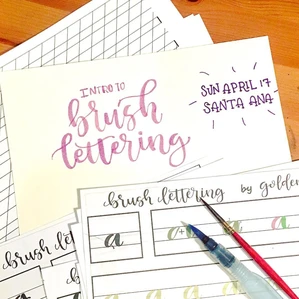 INTRO TO
brush
lettering
SUN APRIL 17
SANTA ANA
brush lettering by golden
a
brush lett
a